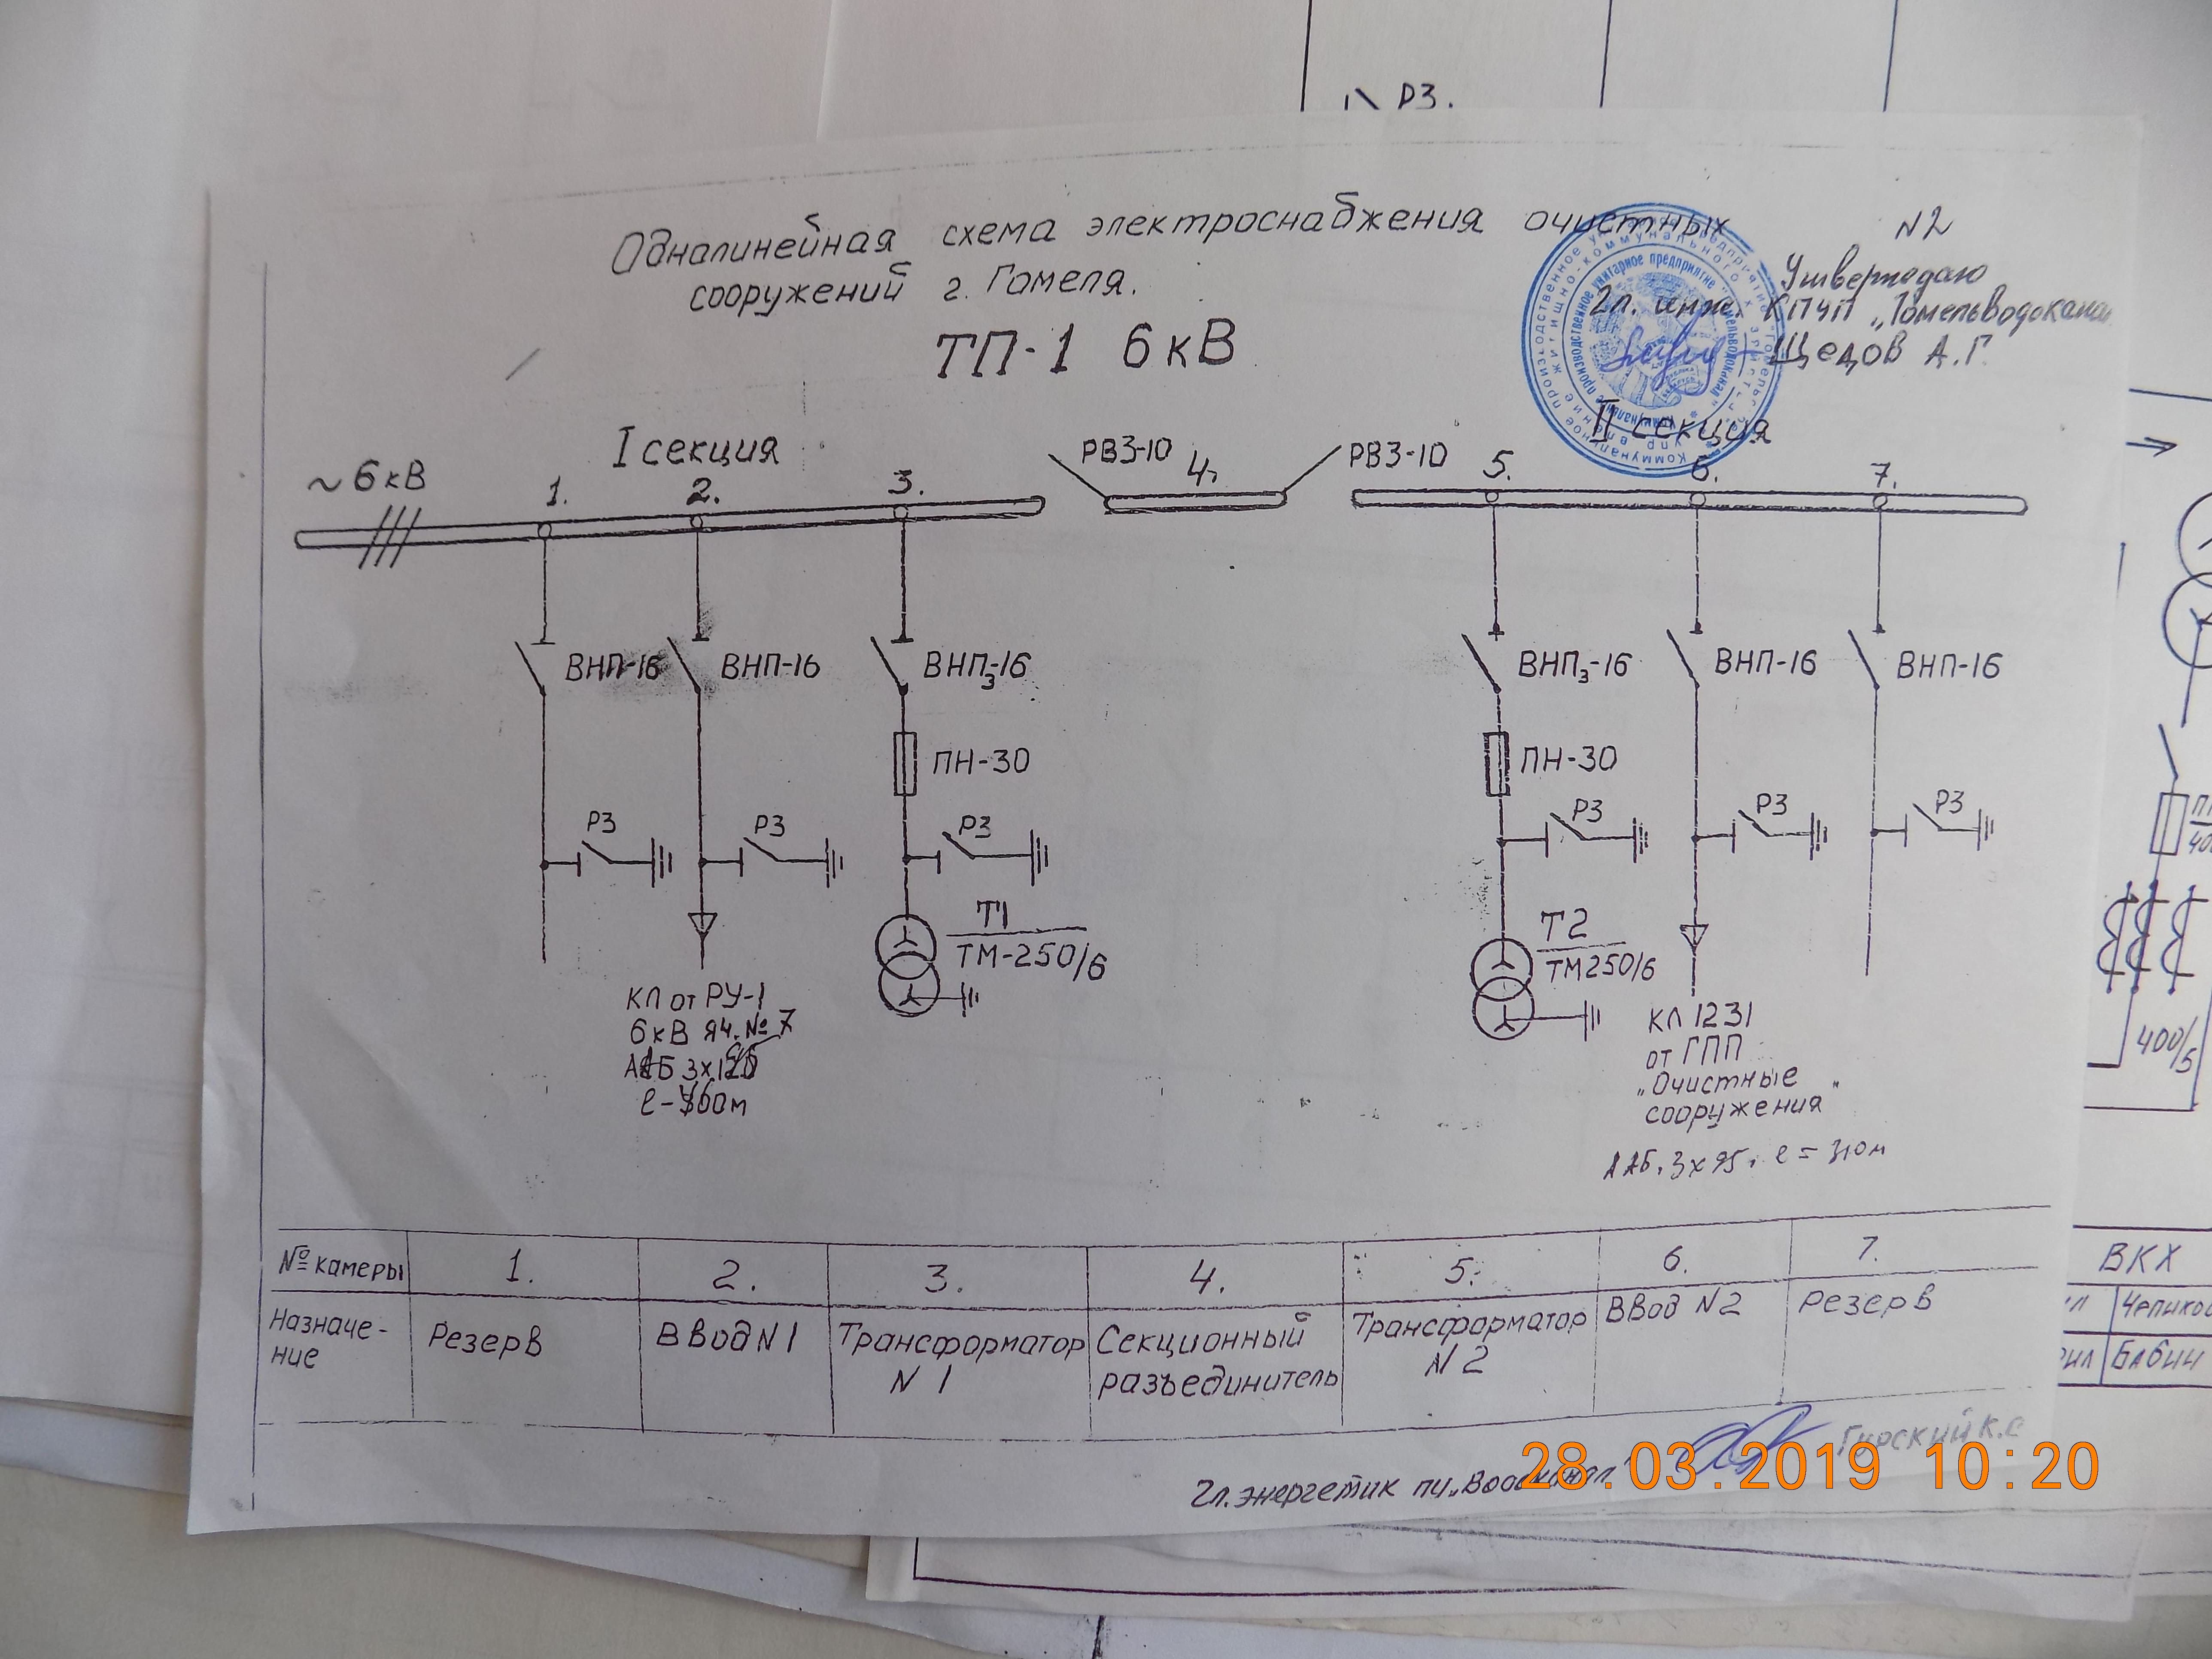 РЗ.
Одналинейная схема электроснабжения очистных
сооружений г. Гомеля.
ТП-1 6кВ
N2
Утверждаю
Гл. инж. КПЧП „Гомельводокана
Щедов А.Г.
I секция
II секция
~6кВ
1. 2. 3. РВЗ-10 4. РВЗ-10 5. 6. 7.
ВНП-16 ВНП-16 ВНПз-16 ВНПз-16 ВНП-16 ВНП-16
ПН-30 ПН-30
РЗ РЗ РЗ РЗ РЗ РЗ
Т1
ТМ-250/6
Т2
ТМ250/6
КЛ от РУ-1
6кВ яч. № 7
КЛ 1231
от ГПП
„Очистные
сооружения"
ААБ. 3х95, l = 310м
400/5
№ камеры 1. 2. 3. 4. 5. 6. 7.
Назначе-
ние
Резерв
Ввод N1
Трансформатор
N 1
Секционный
разъединитель
Трансформатор
N 2
Ввод N2
Резерв
ВКХ
Гл. энергетик пу „Водоканал"
28.03.2019 10:20